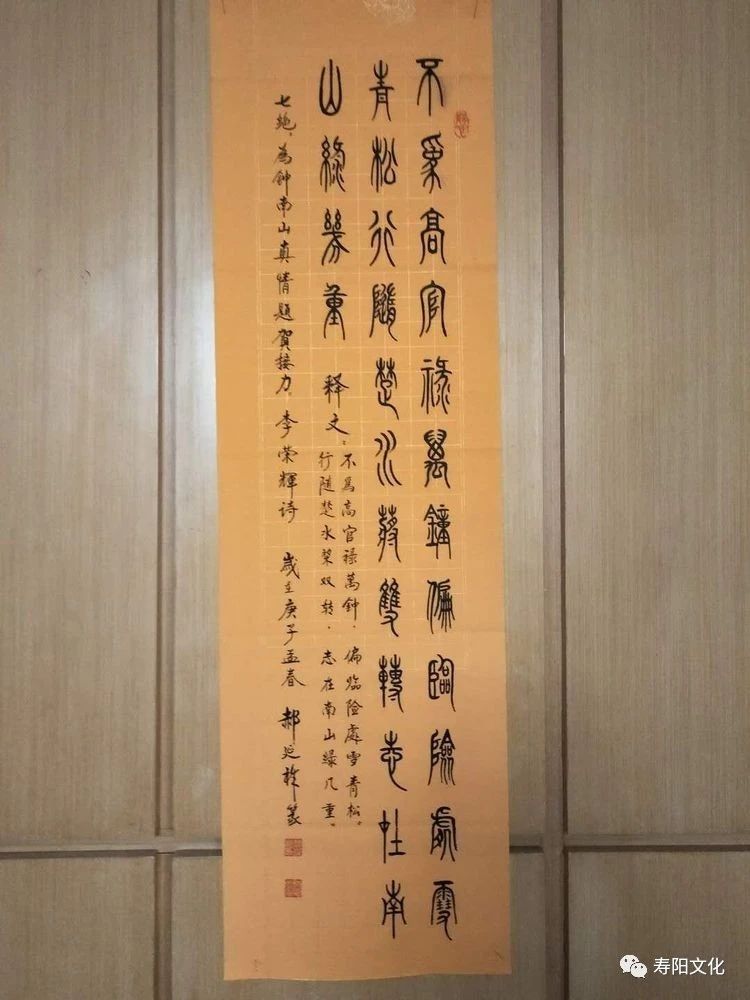 不為高官祿萬鐘偏臨險處雪
青松行隨楚水槳雙轉志在南
山綠幾重
释文：不爲高官禄萬钟，偏临险處雪青松。
行随楚水桨双转，志在南山绿几重。
七绝，為钟南山真情題賀接力。李荣輝诗 歲在庚子孟春 郝 篆
寿阳文化